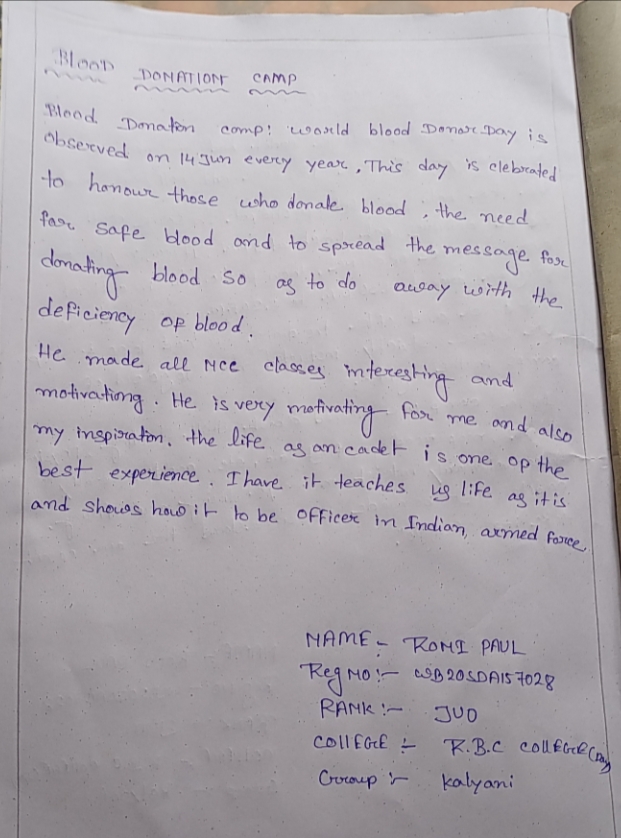 Blood DONATION CAMP
Blood Donation camp: woarld blood Donor Day is
observed on 14 Jun every year, This day is clebrated
to honour those who donate blood, the need
for safe blood and to spread the message for
donating blood so as to do away with the
deficiency of blood.
He made all NCC classes interesting and
motivationg. He is very motivating for me and also
my inspiration. the life as an cadet is one of the
best experience. I have it teaches us life as it is
and shows how it to be officer in Indian, armed force
NAME - ROMI PAUL
Reg NO :- WB20SDA157028
RANK :- JUO
COllEGE :- R.B.C COllEGE (Day
Group :- Kalyani